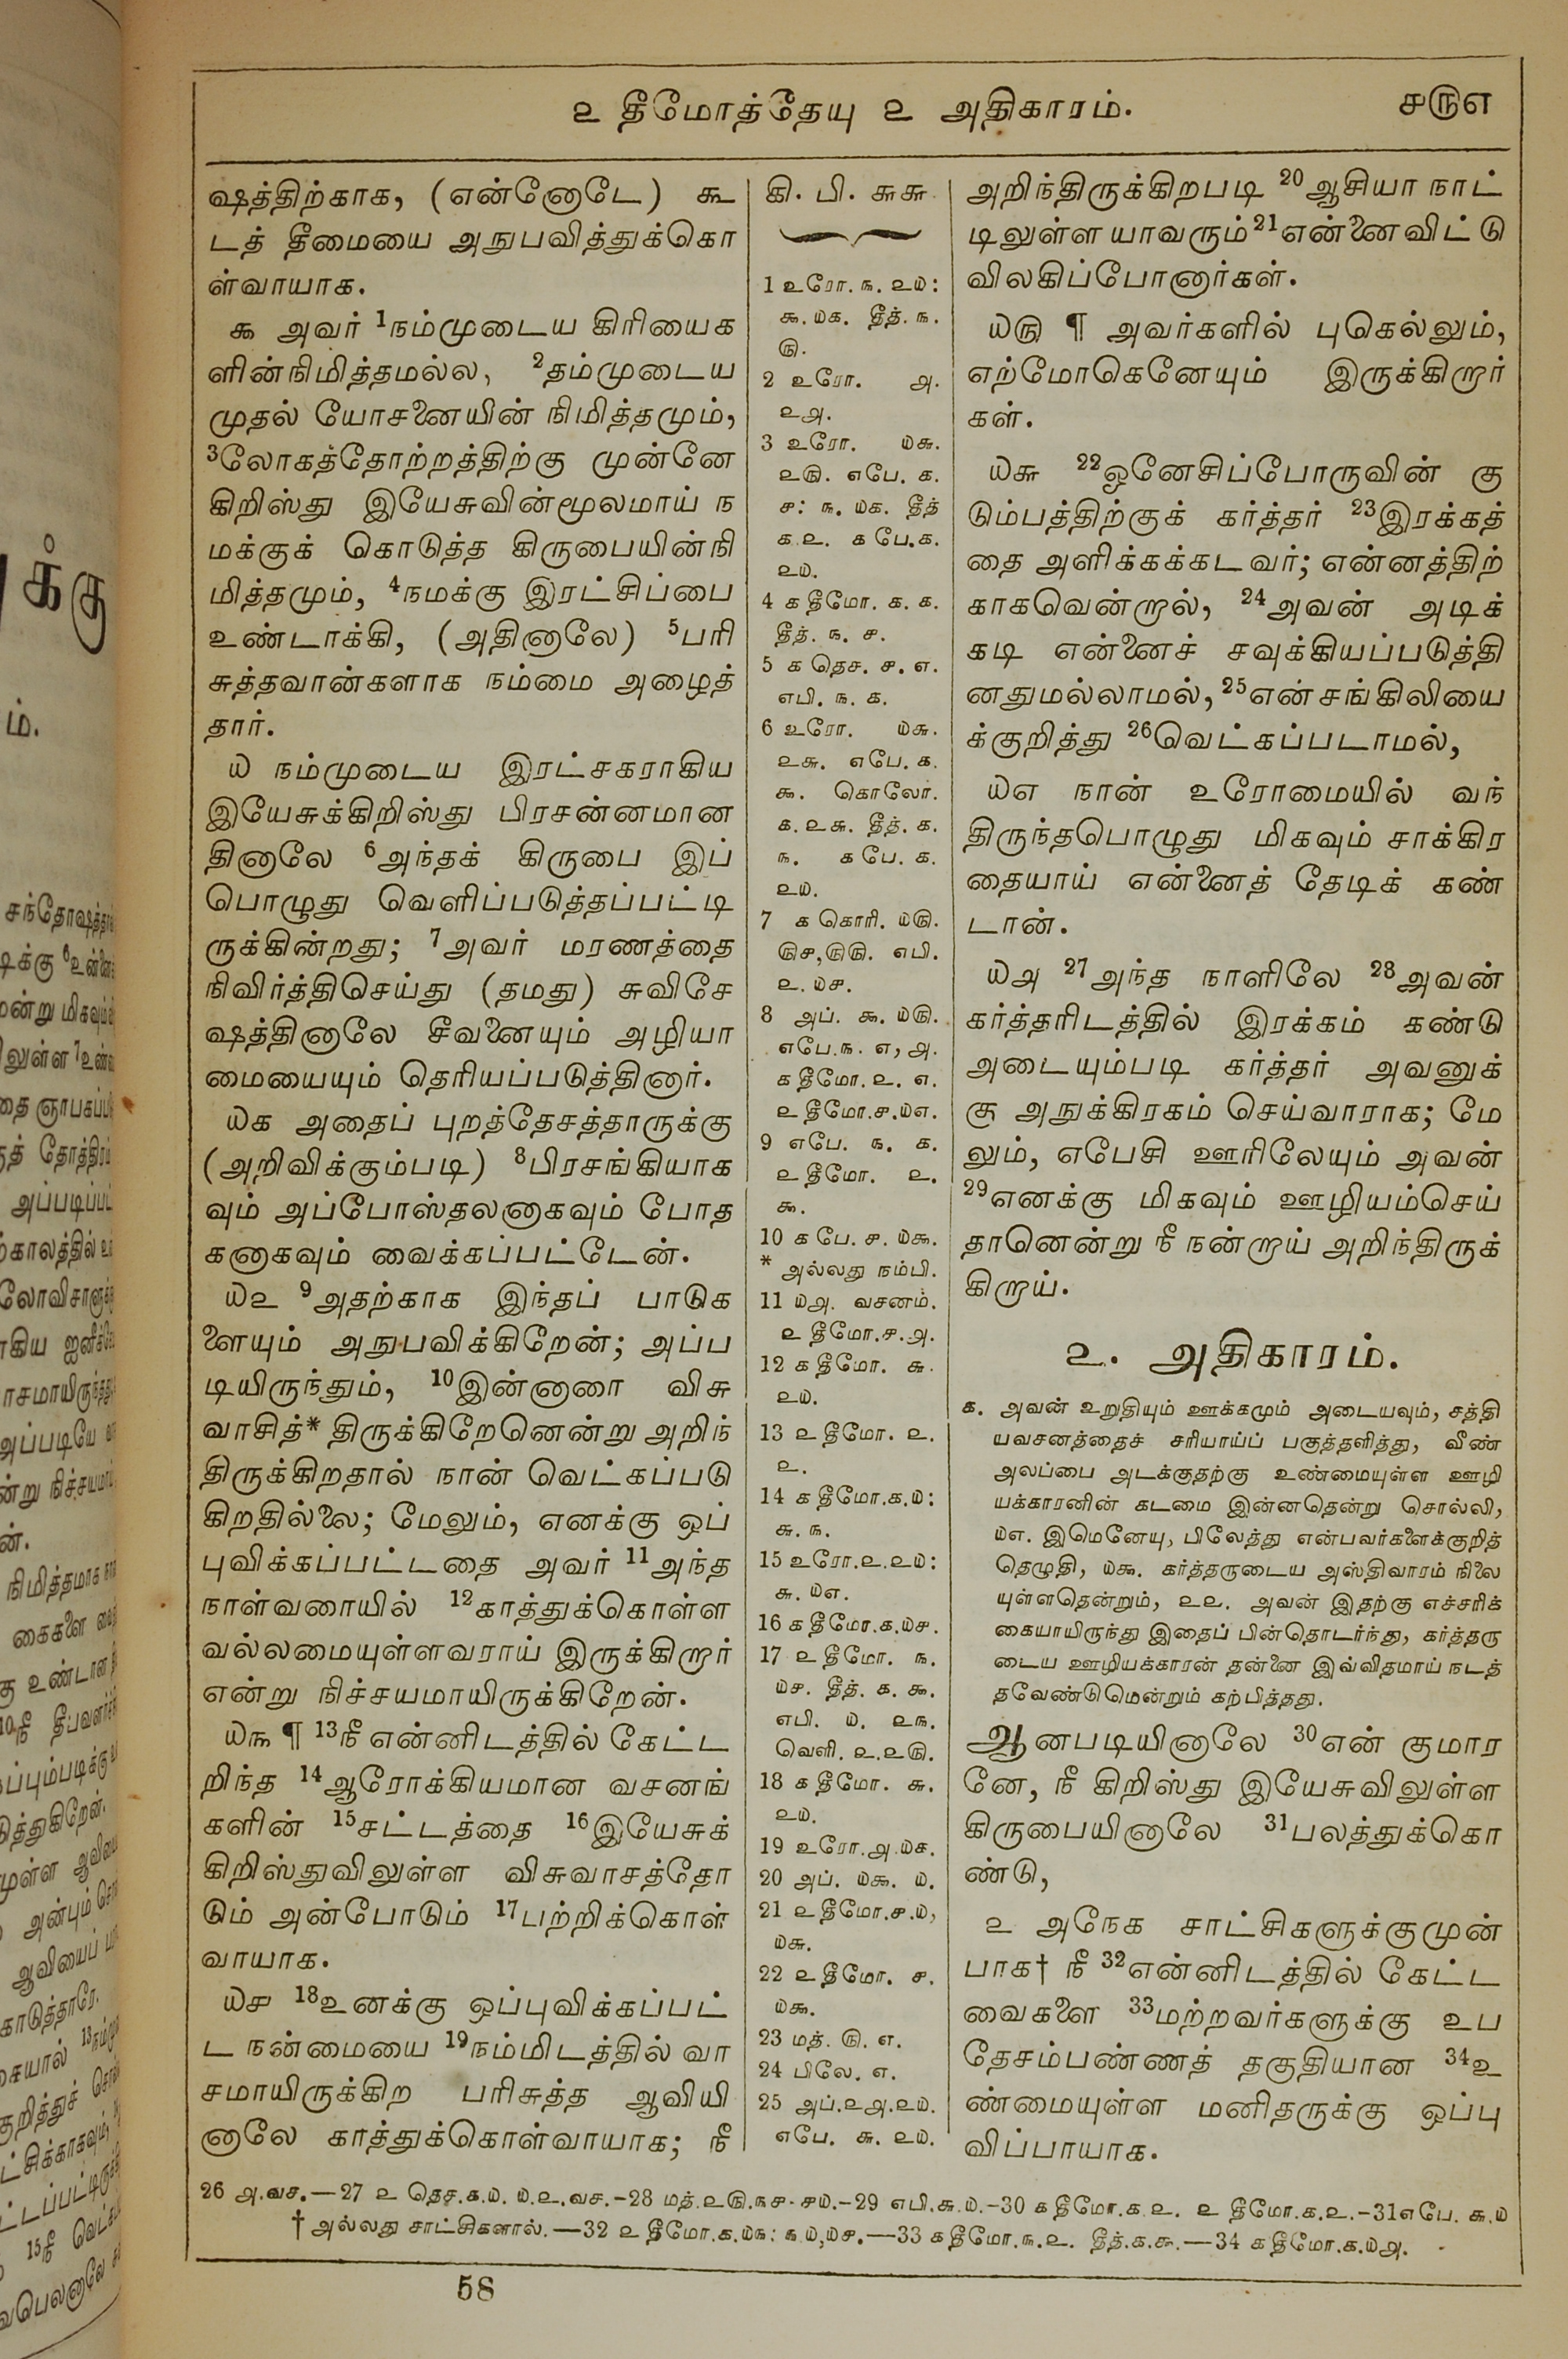 ௨ தீமோத்தேயு ௨ அதிகாரம்.
௪௫௭
ஷத்திற்காக, (என்னோடே) கூ
டத் தீமையை அநுபவித்துக்கொ
ள்வாயாக.
௯ அவர் 1நம்முடைய கிரியைக
ளின்நிமித்தமல்ல, 2தம்முடைய
முதல் யோசனையின் நிமித்தமும்,
3லோகத்தோற்றத்திற்கு முன்னே
கிறிஸ்து இயேசுவின்மூலமாய் ந
மக்குக் கொடுத்த கிருபையின்நி
மித்தமும், 4நமக்கு இரட்சிப்பை
உண்டாக்கி, (அதினாலே) 5பரி
சுத்தவான்களாக நம்மை அழைத்
தார்.
௰ நம்முடைய இரட்சகராகிய
இயேசுக்கிறிஸ்து பிரசன்னமான
தினாலே 6அந்தக் கிருபை இப்
பொழுது வெளிப்படுத்தப்பட்டி
ருக்கின்றது; 7அவர் மரணத்தை
நிவிர்த்திசெய்து (தமது) சுவிசே
ஷத்தினாலே சீவனையும் அழியா
மையையும் தெரியப்படுத்தினார்.
௰௧ அதைப் புறத்தேசத்தாருக்கு
(அறிவிக்கும்படி) 8பிரசங்கியாக
வும் அப்போஸ்தலனாகவும் போத
கனாகவும் வைக்கப்பட்டேன்.
௰௨ 9அதற்காக இந்தப் பாடுக
ளையும் அநுபவிக்கிறேன்; அப்ப
டியிருந்தும், 10இன்னாரை விசு
வாசித்* திருக்கிறேனென்று அறிந்
திருக்கிறதால் நான் வெட்கப்படு
கிறதில்லை; மேலும், எனக்கு ஒப்
புவிக்கப்பட்டதை அவர் 11அந்த
நாள்வரையில் 12காத்துக்கொள்ள
வல்லமையுள்ளவராய் இருக்கிறார்
என்று நிச்சயமாயிருக்கிறேன்.
௰௩ ¶ 13நீ என்னிடத்தில் கேட்ட
றிந்த 14ஆரோக்கியமான வசனங்
களின் 15சட்டத்தை 16இயேசுக்
கிறிஸ்துவிலுள்ள விசுவாசத்தோ
டும் அன்போடும் 17பற்றிக்கொள்
வாயாக.
௰௪ 18உனக்கு ஒப்புவிக்கப்பட்
ட நன்மையை 19நம்மிடத்தில் வா
சமாயிருக்கிற பரிசுத்த ஆவியி
னாலே காத்துக்கொள்வாயாக; நீ
கி. பி. ௬௬
1 உரோ. ௩. ௨௰:
௯. ௰௧. தீத். ௩.
௫.
2 உரோ. ௮.
௨௮.
3 உரோ. ௰௬.
௨௫. எபே. ௧.
௪: ௩. ௰௧. தீத்
௧. ௨. ௧ பே. ௧.
௨௰.
4 ௧ தீமோ. ௧. ௧.
தீத். ௩. ௪.
5 ௧ தெச. ௪. ௭.
எபி. ௩. ௧.
6 உரோ. ௰௬.
௨௬. எபே. ௧.
௯. கொலோ.
௧. ௨௬. தீத். ௧.
௩. ௧ பே. ௧.
௨௰.
7 ௧ கொரி. ௰௫.
௫௪, ௫௫. எபி.
௨. ௰௪.
8 அப். ௯. ௰௫.
எபே. ௩. ௭, ௮.
௧ தீமோ. ௨. ௭.
௨ தீமோ. ௪. ௰௭.
9 எபே. ௩. ௧.
௨ தீமோ. ௨.
௯.
10 ௧ பே. ௪. ௰௯.
* அல்லது நம்பி.
11 ௰௮. வசனம்.
௨ தீமோ. ௪. ௮.
12 ௧ தீமோ. ௬.
௨௰.
13 ௨ தீமோ. ௨.
௨.
14 ௧ தீமோ. ௧. ௰:
௬. ௩.
15 உரோ. ௨. ௨௰:
௬. ௰௭.
16 ௧ தீமோ. ௧. ௰௪.
17 ௨ தீமோ. ௩.
௰௪. தீத். ௧. ௯.
எபி. ௰. ௨௩.
வெளி. ௨. ௨௫.
18 ௧ தீமோ. ௬.
௨௰.
19 உரோ. ௮. ௰௧.
20 அப். ௰௯. ௰.
21 ௨ தீமோ. ௪. ௰,
௰௬.
22 ௨ தீமோ. ௪.
௰௯.
23 மத். ௫. ௭.
24 பிலே. ௭.
25 அப். ௨௮. ௨௰.
எபே. ௬. ௨௰.
அறிந்திருக்கிறபடி 20ஆசியா நாட்
டிலுள்ள யாவரும் 21என்னைவிட்டு
விலகிப்போனார்கள்.
௰௫ ¶ அவர்களில் புகெல்லும்,
எற்மோகெனேயும் இருக்கிறார்
கள்.
௰௬ 22ஓனேசிப்போருவின் கு
டும்பத்திற்குக் கர்த்தர் 23இரக்கத்
தை அளிக்கக்கடவர்; என்னத்திற்
காகவென்றால், 24அவன் அடிக்
கடி என்னைச் சவுக்கியப்படுத்தி
னதுமல்லாமல், 25என்சங்கிலியை
க்குறித்து 26வெட்கப்படாமல்,
௰௭ நான் உரோமையில் வந்
திருந்தபொழுது மிகவும் சாக்கிர
தையாய் என்னைத் தேடிக் கண்
டான்.
௰௮ 27அந்த நாளிலே 28அவன்
கர்த்தரிடத்தில் இரக்கம் கண்டு
அடையும்படி கர்த்தர் அவனுக்
கு அநுக்கிரகம் செய்வாராக; மே
லும், எபேசி ஊரிலேயும் அவன்
29எனக்கு மிகவும் ஊழியம்செய்
தானென்று நீ நன்றாய் அறிந்திருக்
கிறாய்.
௨. அதிகாரம்.
௧. அவன் உறுதியும் ஊக்கமும் அடையவும், சத்தி
யவசனத்தைச் சரியாய்ப் பகுத்தளித்து, வீண்
அலப்பை அடக்குதற்கு உண்மையுள்ள ஊழி
யக்காரனின் கடமை இன்னதென்று சொல்லி,
௰௭. இமெனேயு, பிலேத்து என்பவர்களைக்குறித்
தெழுதி, ௰௯. கர்த்தருடைய அஸ்திவாரம் நிலை
யுள்ளதென்றும், ௨௨. அவன் இதற்கு எச்சரிக்
கையாயிருந்து இதைப் பின்தொடர்ந்து, கர்த்தரு
டைய ஊழியக்காரன் தன்னை இவ்விதமாய் நடத்
தவேண்டுமென்றும் கற்பித்தது.
ஆனபடியினாலே 30என் குமார
னே, நீ கிறிஸ்து இயேசுவிலுள்ள
கிருபையினாலே 31பலத்துக்கொ
ண்டு,
௨ அநேக சாட்சிகளுக்குமுன்
பாக† நீ 32என்னிடத்தில் கேட்ட
வைகளை 33மற்றவர்களுக்கு உப
தேசம்பண்ணத் தகுதியான 34உ
ண்மையுள்ள மனிதருக்கு ஒப்பு
விப்பாயாக.
26 ௮. வச.—27 ௨ தெச. ௧. ௰. ௰. ௨. வச.-28 மத். ௨௫. ௩௪-௪௰.-29 எபி. ௬. ௰.-30 ௧ தீமோ. ௧. ௨. ௨ தீமோ. ௧. ௨.-31எபே. ௬. ௰
† அல்லது சாட்சிகளால்.—32 ௨ தீமோ. ௧. ௰௩: ௩. ௰, ௰௪.—33 ௧ தீமோ. ௩. ௨. தீத். ௧. ௯.—34 ௧ தீமோ. ௧. ௰௮.
58